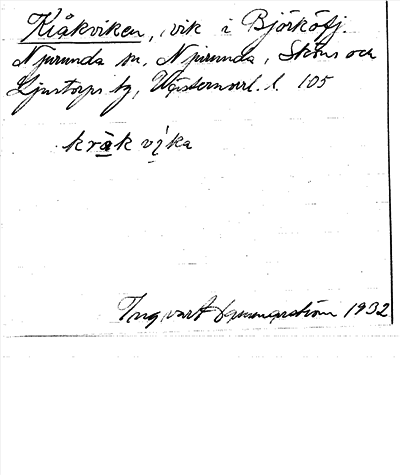 Kråkviken, vik i Björköfj.
Njurunda sn, Njurunda, Sköns och
Ljustorps tg, Västernorrl. l. 105
kråk vika
Ingvart 1932